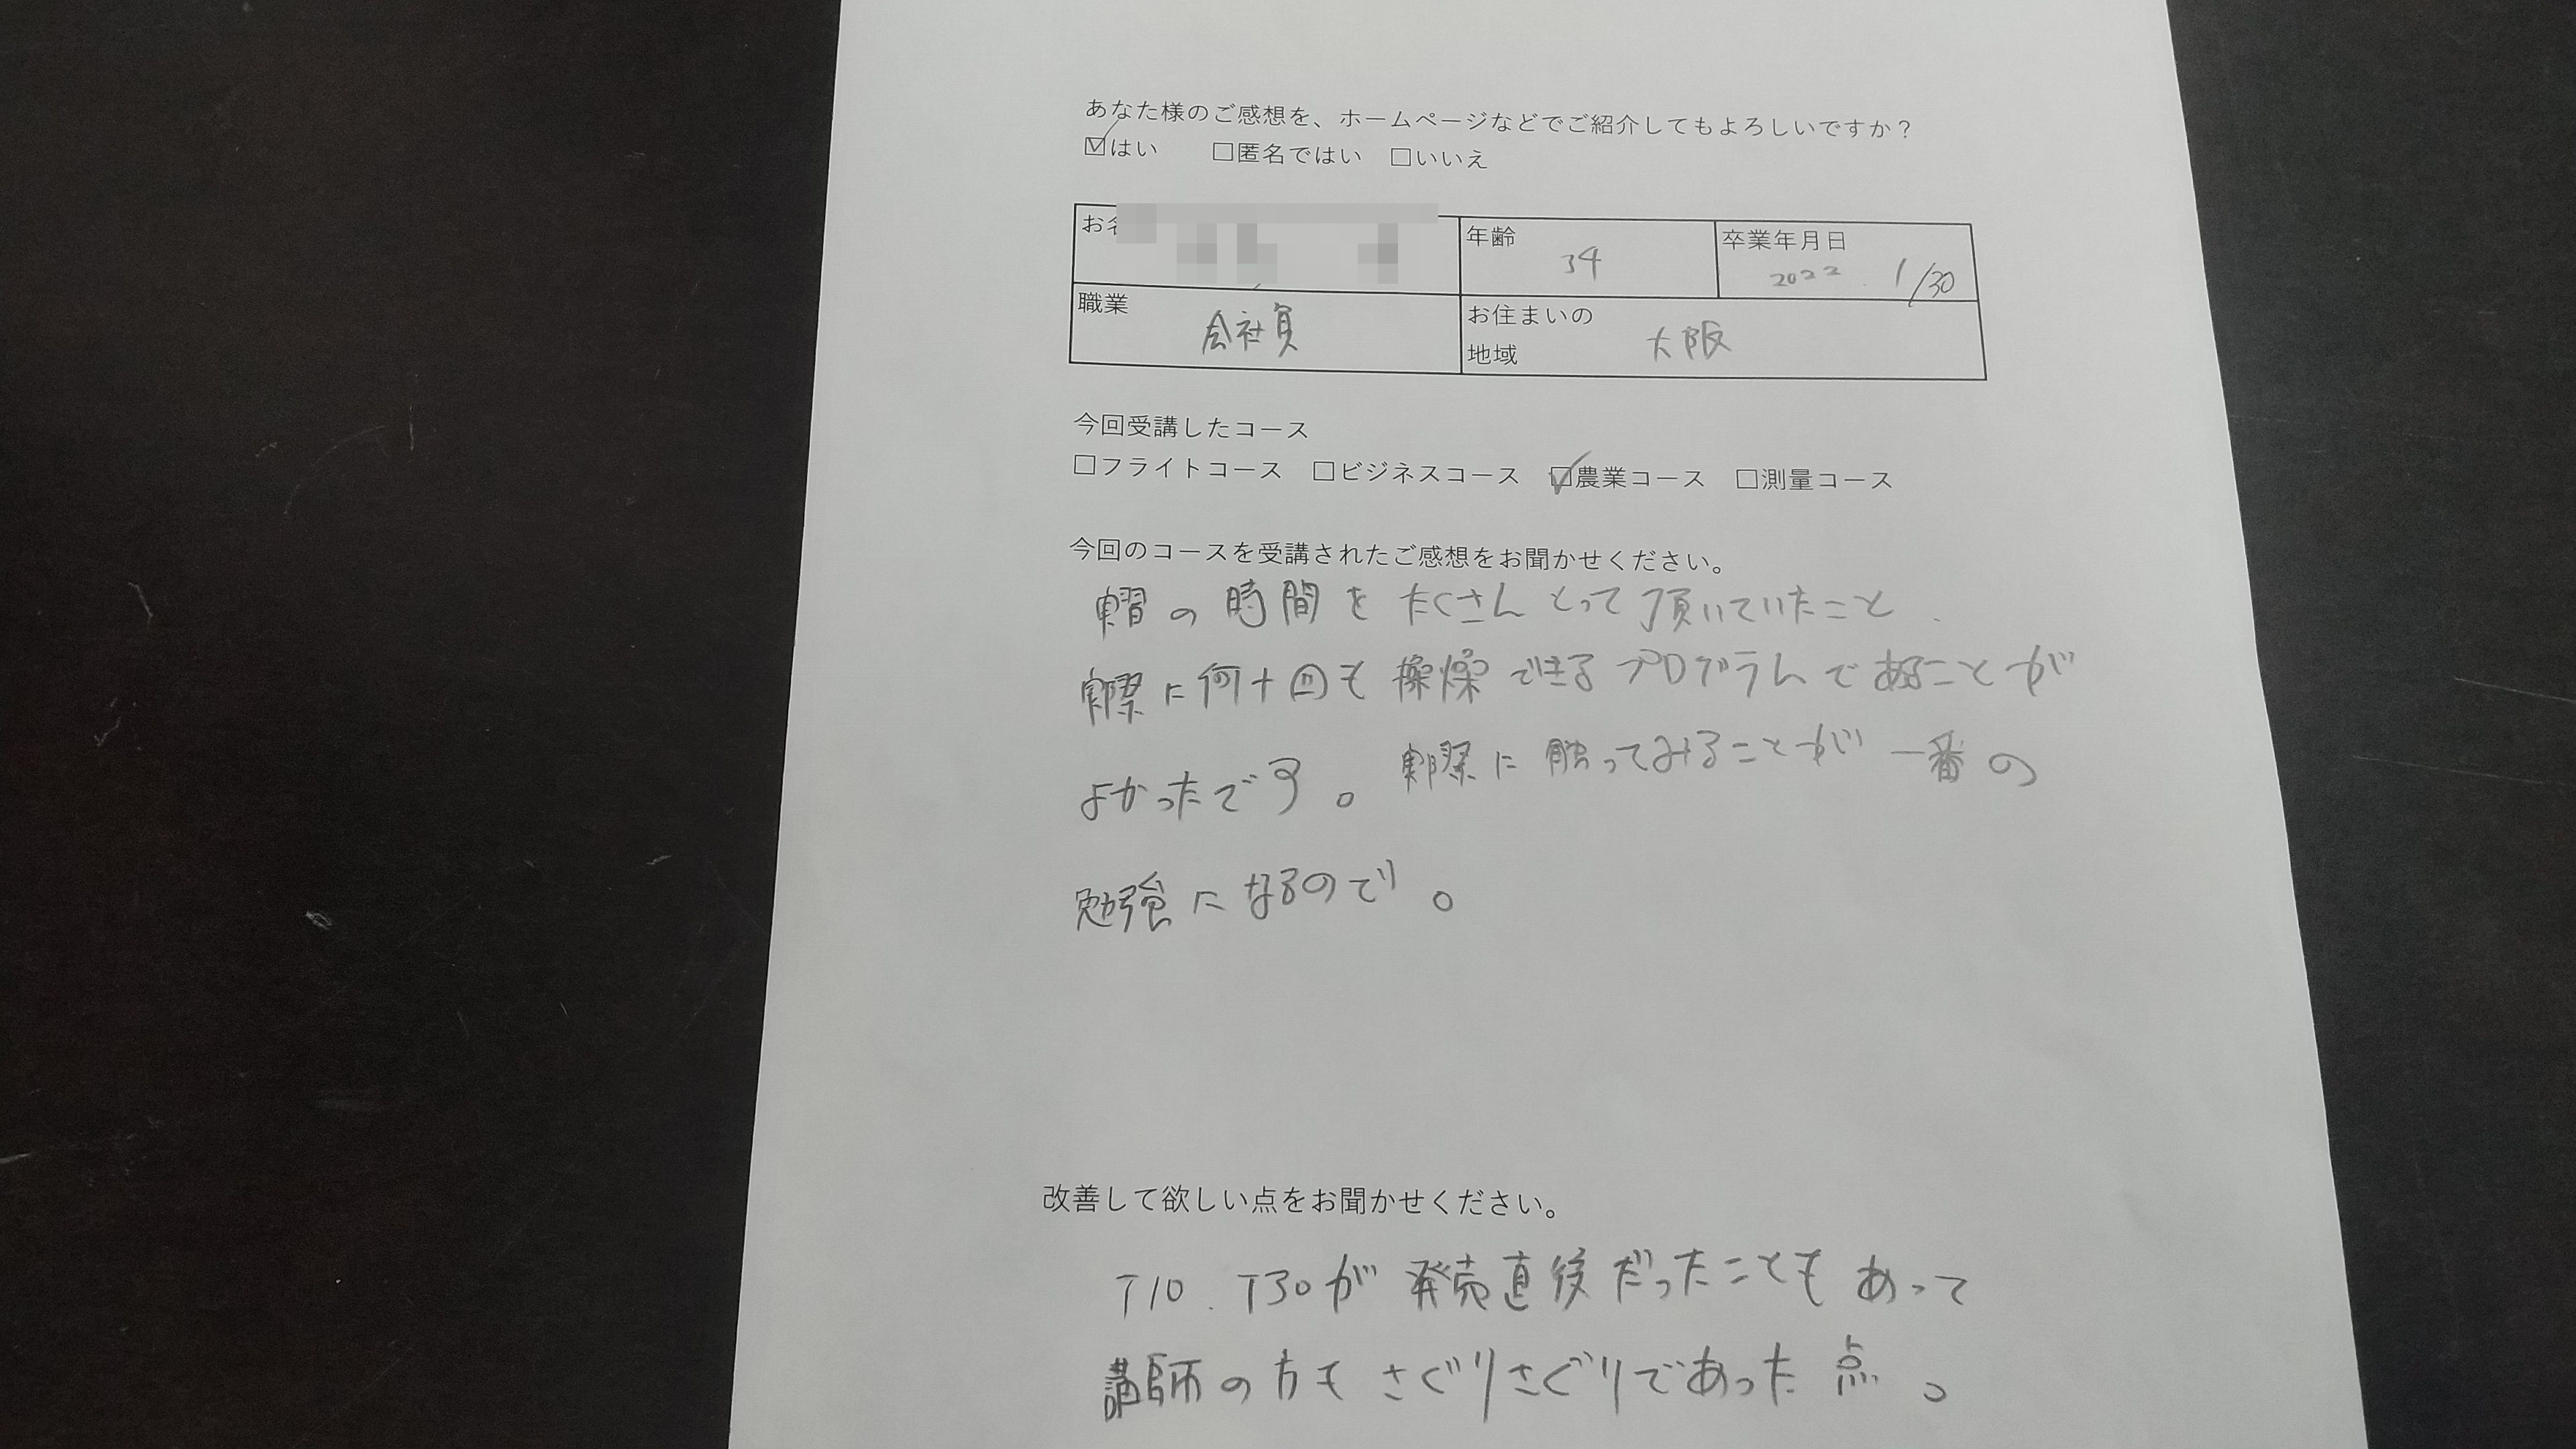 あなた様のご感想を、ホームページなどでご紹介してもよろしいですか？
☑はい □匿名ではい □いいえ
お名
年齢 34
卒業年月日 2022 1/30
職業 会社員
お住まいの
地域 大阪
今回受講したコース
□フライトコース □ビジネスコース ☑農業コース □測量コース
今回のコースを受講されたご感想をお聞かせください。
実習の時間をたくさんとって頂いていたこと、
実際に何十回も操燥できるプログラムであることが
よかったです。実際に触ってみることが一番の
勉強になるので。
改善して欲しい点をお聞かせください。
T10、T30が発売直後だったこともあって
講師の方もさぐりさぐりであった点。